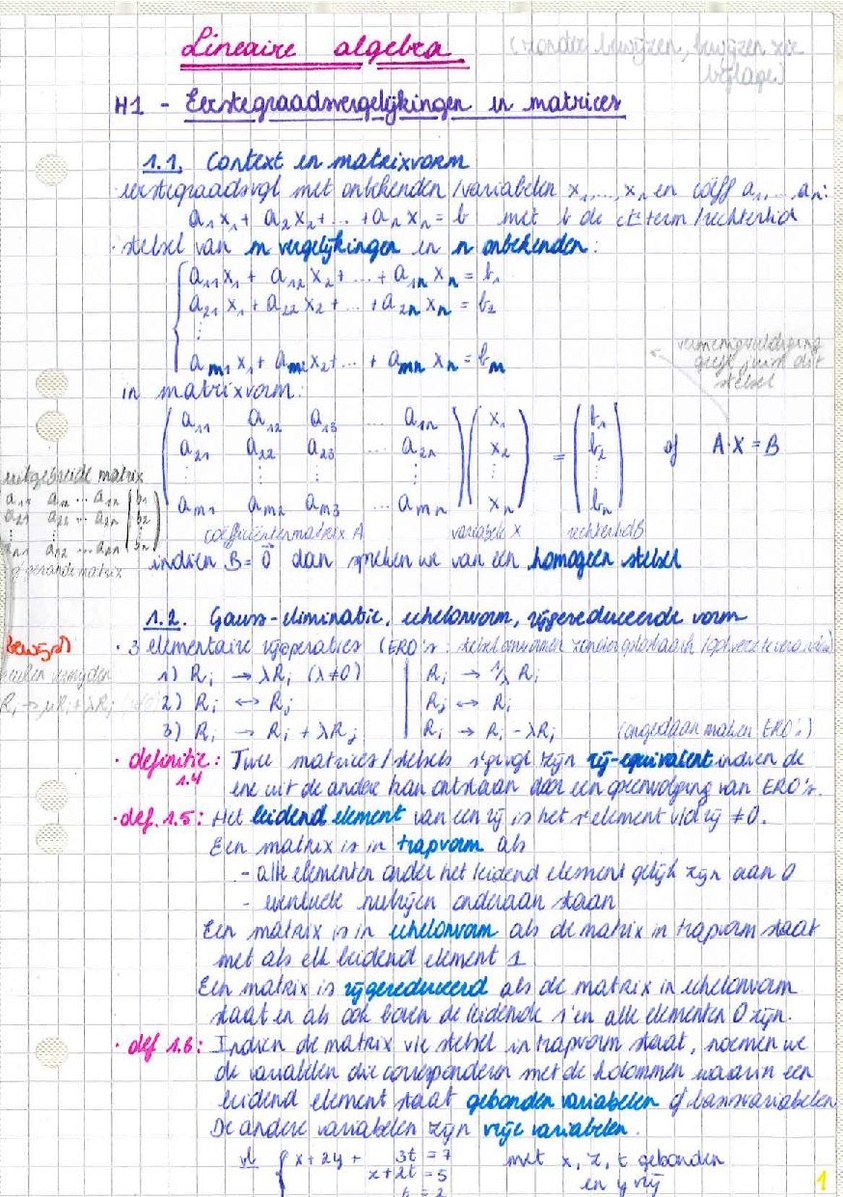 Lineaire algebra
(zonder bewijzen, bewijzen zie
bijlage)
H1 - Eerstegraadsvergelijkingen en matrices
1.1. Context en matrixvorm
eerstegraadsvgl met onbekenden/variabelen x₁,...,xₙ en coëff a₁,...,aₙ:
a₁x₁ + a₂x₂ + ... + aₙxₙ = b met b de cte term/rechterlid
· stelsel van m vergelijkingen en n onbekenden:
a₁₁x₁ + a₁₂x₂ + ... + a₁ₙxₙ = b₁
a₂₁x₁ + a₂₂x₂ + ... + a₂ₙxₙ = b₂
⋮
aₘ₁x₁ + aₘ₂x₂ + ... + aₘₙxₙ = bₘ
vermenigvuldiging
geeft juist dit
stelsel
in matrixvorm:
a₁₁ a₁₂ a₁₃ ... a₁ₙ x₁ b₁
a₂₁ a₂₂ a₂₃ ... a₂ₙ x₂ = b₂ of A·X = B
⋮ ⋮ ⋮ ⋮ ⋮ ⋮
aₘ₁ aₘ₂ aₘ₃ ... aₘₙ xₙ bₙ
coëfficiëntenmatrix A variabele X rechterlid B
uitgebreide matrix
a₁₁ a₁₂ ... a₁ₙ | b₁
a₂₁ a₂₂ ... a₂ₙ | b₂
⋮ ⋮ ⋮ ⋮
of gerande matrix
indien B = 0⃗ dan spreken we van een homogeen stelsel
1.2. Gauss-eliminatie, echelonvorm, rijgereduceerde vorm
bewijs
· 3 elementaire rijoperaties (ERO's: stelsel omvormen zonder
1) Rᵢ → λRᵢ (λ≠0) | Rᵢ → 1/λ Rᵢ
2) Rᵢ ↔ Rⱼ | Rⱼ ↔ Rᵢ
3) Rᵢ → Rᵢ + λRⱼ | Rᵢ → Rᵢ - λRⱼ (ongedaan maken ERO's)
vermijden
Rᵢ → μRᵢ + λRⱼ
· definitie: Twee matrices/stelsels zijn rij-equivalent indien de
1.4 ene uit de andere kan ontstaan door een opeenvolging van ERO's.
· def. 1.5: Het leidend element van een rij is het 1e element v/d rij ≠0.
Een matrix is in trapvorm als
- alle elementen onder het leidend element gelijk zijn aan 0
- eventuele nulrijen onderaan staan
Een matrix is in echelonvorm als de matrix in trapvorm staat
met als elk leidend element 1
Een matrix is rijgereduceerd als de matrix in echelonvorm
staat en als ook boven de leidende 1'en alle elementen 0 zijn.
· def 1.6: Indien de matrix v/e stelsel in trapvorm staat, noemen we
de variabelen die corresponderen met de kolommen waarin een
leidend element staat gebonden variabelen of basisvariabelen
De andere variabelen zijn vrije variabelen.
vb x + 2y + 3t = 7 met x, z, t gebonden
z + 2t = 5 en y vrij
t = 2
1